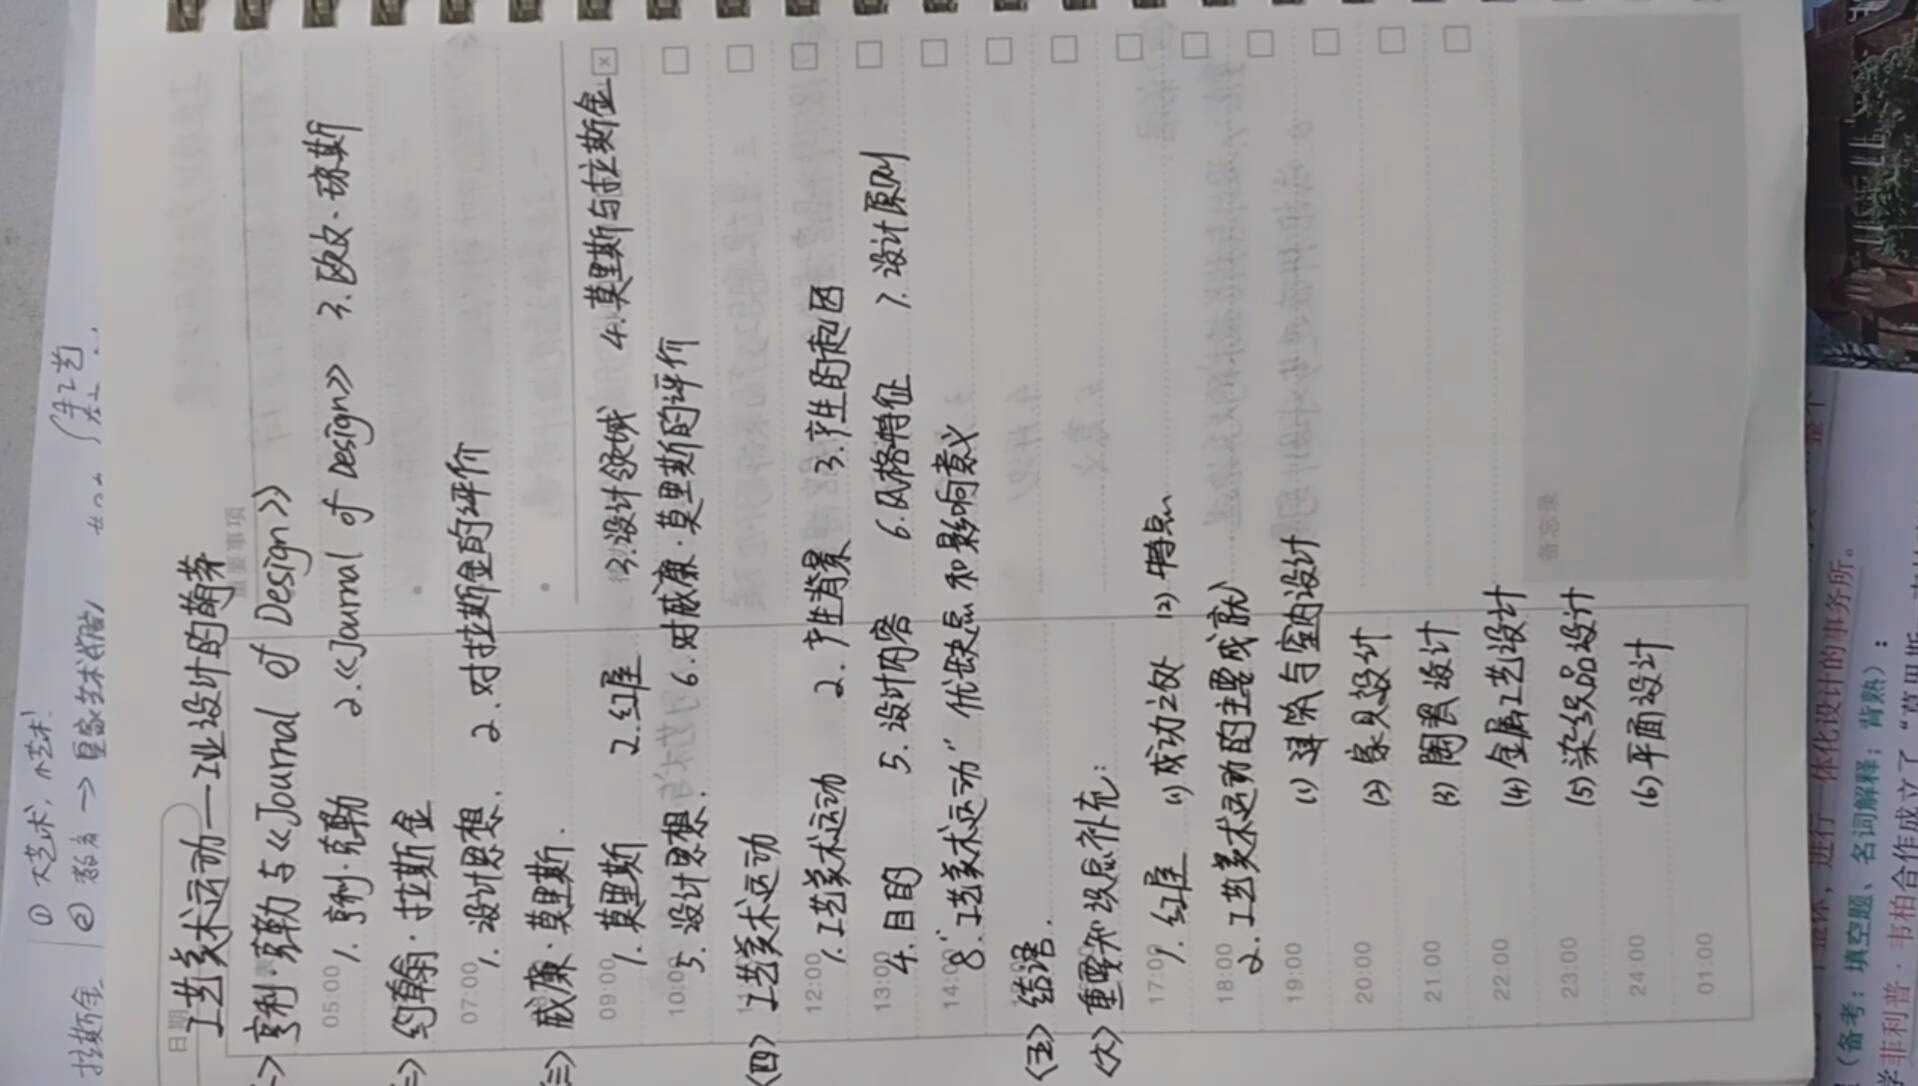 ① 大艺术,小艺术!
拉斯金 ② 教育 → 皇家艺术学院
日期
工艺美术运动——工业设计的萌芽
重要事项
<一> 亨利·克勒与《Journal of Design》
05:00 1. 亨利·克勒 2.《Journal of Design》 3. 欧文·琼斯
<二> 约翰·拉斯金
07:00 1. 设计思想. 2. 对拉斯金的评价
<三> 威廉·莫里斯.
09:00 1. 莫里斯 2. 红屋 3. 设计领域 4. 莫里斯与拉斯金
10:00 5. 设计思想. 6. 对威廉·莫里斯的评价
<四> 工艺美术运动
12:00 1. 工艺美术运动 2. 产生背景 3. 产生的起因
13:00 4. 目的 5. 设计内容 6. 风格特征 7. 设计原则
14:00 8. "工艺美术运动" 优缺点和影响意义
<五> 结语.
<六> 重要知识点补充:
17:00 1. 红屋 (1) 成功之处 (2) 特点
18:00 2. 工艺美术运动的主要成就
19:00 (1) 建筑与室内设计
20:00 (2) 家具设计
21:00 (3) 陶瓷设计
22:00 (4) 金属工艺设计
23:00 (5) 染织品设计
24:00 (6) 平面设计
01:00
备忘录
整体,进行一体化设计的事务所。
(备考:填空题、名词解释;背熟):
菲利普·韦柏合作成立了“莫里斯